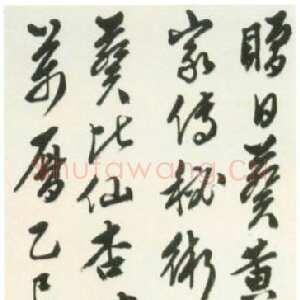 日葵黄
家傳秘術
葵比仙杏
萬曆乙巳
shufawang.cn